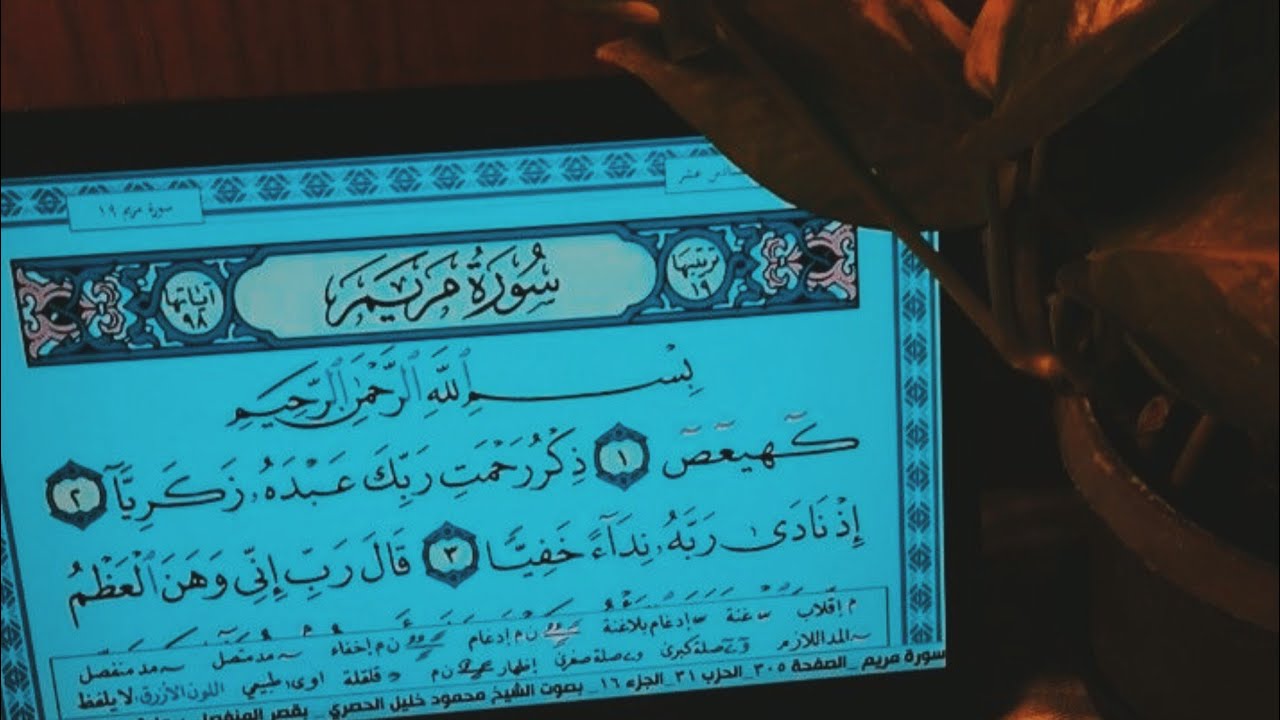 سورة مريم ١٩
ترتيبها ١٩ سُورَةُ مَرْيَمَ آياتها ٩٨
بِسْمِ ٱللَّهِ ٱلرَّحْمَٰنِ ٱلرَّحِيمِ
كٓهيعٓصٓ ١ ذِكْرُ رَحْمَتِ رَبِّكَ عَبْدَهُۥ زَكَرِيَّآ ٢
إِذْ نَادَىٰ رَبَّهُۥ نِدَآءً خَفِيًّا ٣ قَالَ رَبِّ إِنِّى وَهَنَ ٱلْعَظْمُ
م إقلاب غنة إدغام بلاغنة ن م إدغام ن م إخفاء مد متصل مد منفصل
المد اللازم صلة كبرى صلة صغرى إظهار ن م قلقلة اوى طبيعي اللون الأزرق لا يلفظ
سورة مريم _ الصفحة ٣٠٥ _ الحزب ٣١ _ الجزء ١٦ _ بصوت الشيخ محمود خليل الحصري _ بقصر المنفصل